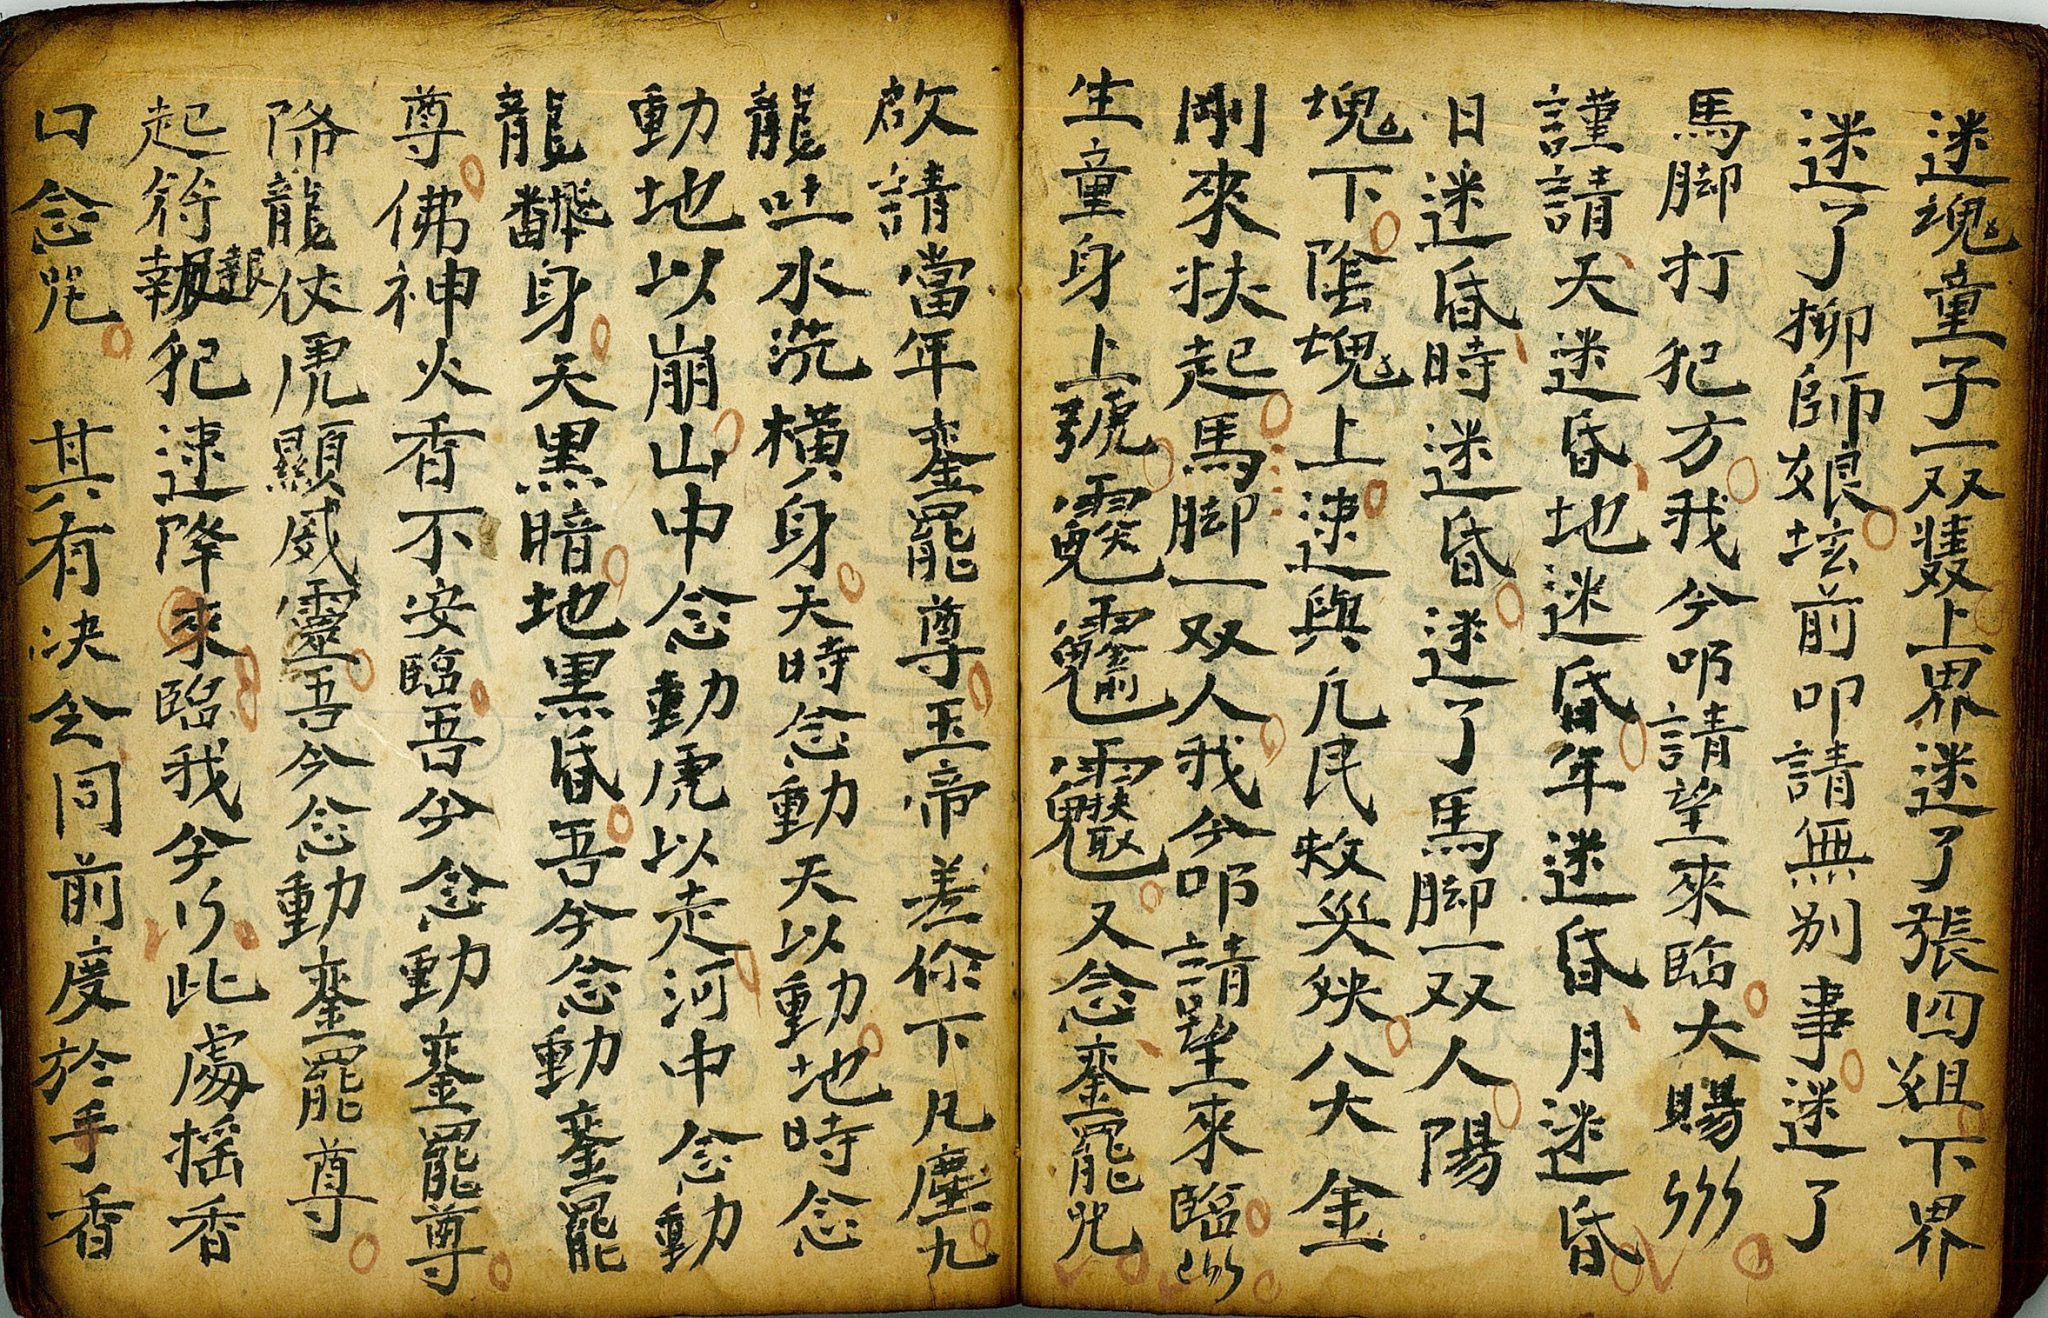 迷魂童子一双双上界迷了張四姐下界
迷了柳師娘坛前叩請無别事迷了
馬脚打犯方我今叩請望來臨大賜
謹請天迷昏地迷昏年迷昏月迷昏
日迷昏時迷昏迷了馬脚一双人陽
塊下陰塊上速與凢民救災殃八大金
剛來扶起馬脚一双人我今叩請望來臨
生童身上號又念銮罷咒
啟請當年銮罷尊玉帝差你下凡塵九
龍吐水洗橫身天時念動天以動地時念
動地以崩山中念動虎以走河中念動
龍翻身天黑暗地黒昏吾今念動銮罷
尊佛神火香不安臨吾今念動銮罷尊
降龍伏虎顯威靈吾今念動銮罷尊
起符報犯速降來臨我今行此處摇香
口念咒 其有决仝同前度於手香